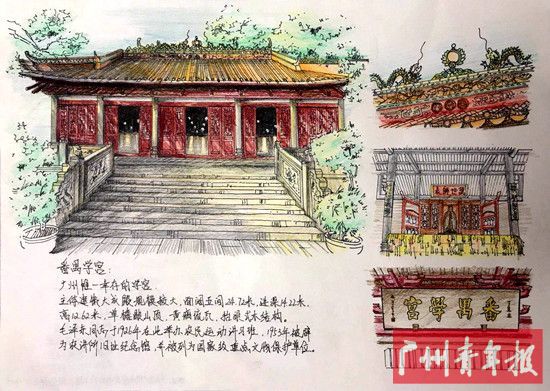 番禺学宫:
广州唯一幸存的学宫.
主体建筑大成殿规模最大, 面阔五间24.72米, 进深14.22米,
高12.62米, 单檐歇山顶, 黄琉璃瓦, 抬梁式木结构.
毛泽东同志于1926年在此举办农民运动讲习班, 1953年被辟
为农讲所旧址纪念馆, 并被列为国家级重点文物保护单位.
番禺學宮
广州青年报